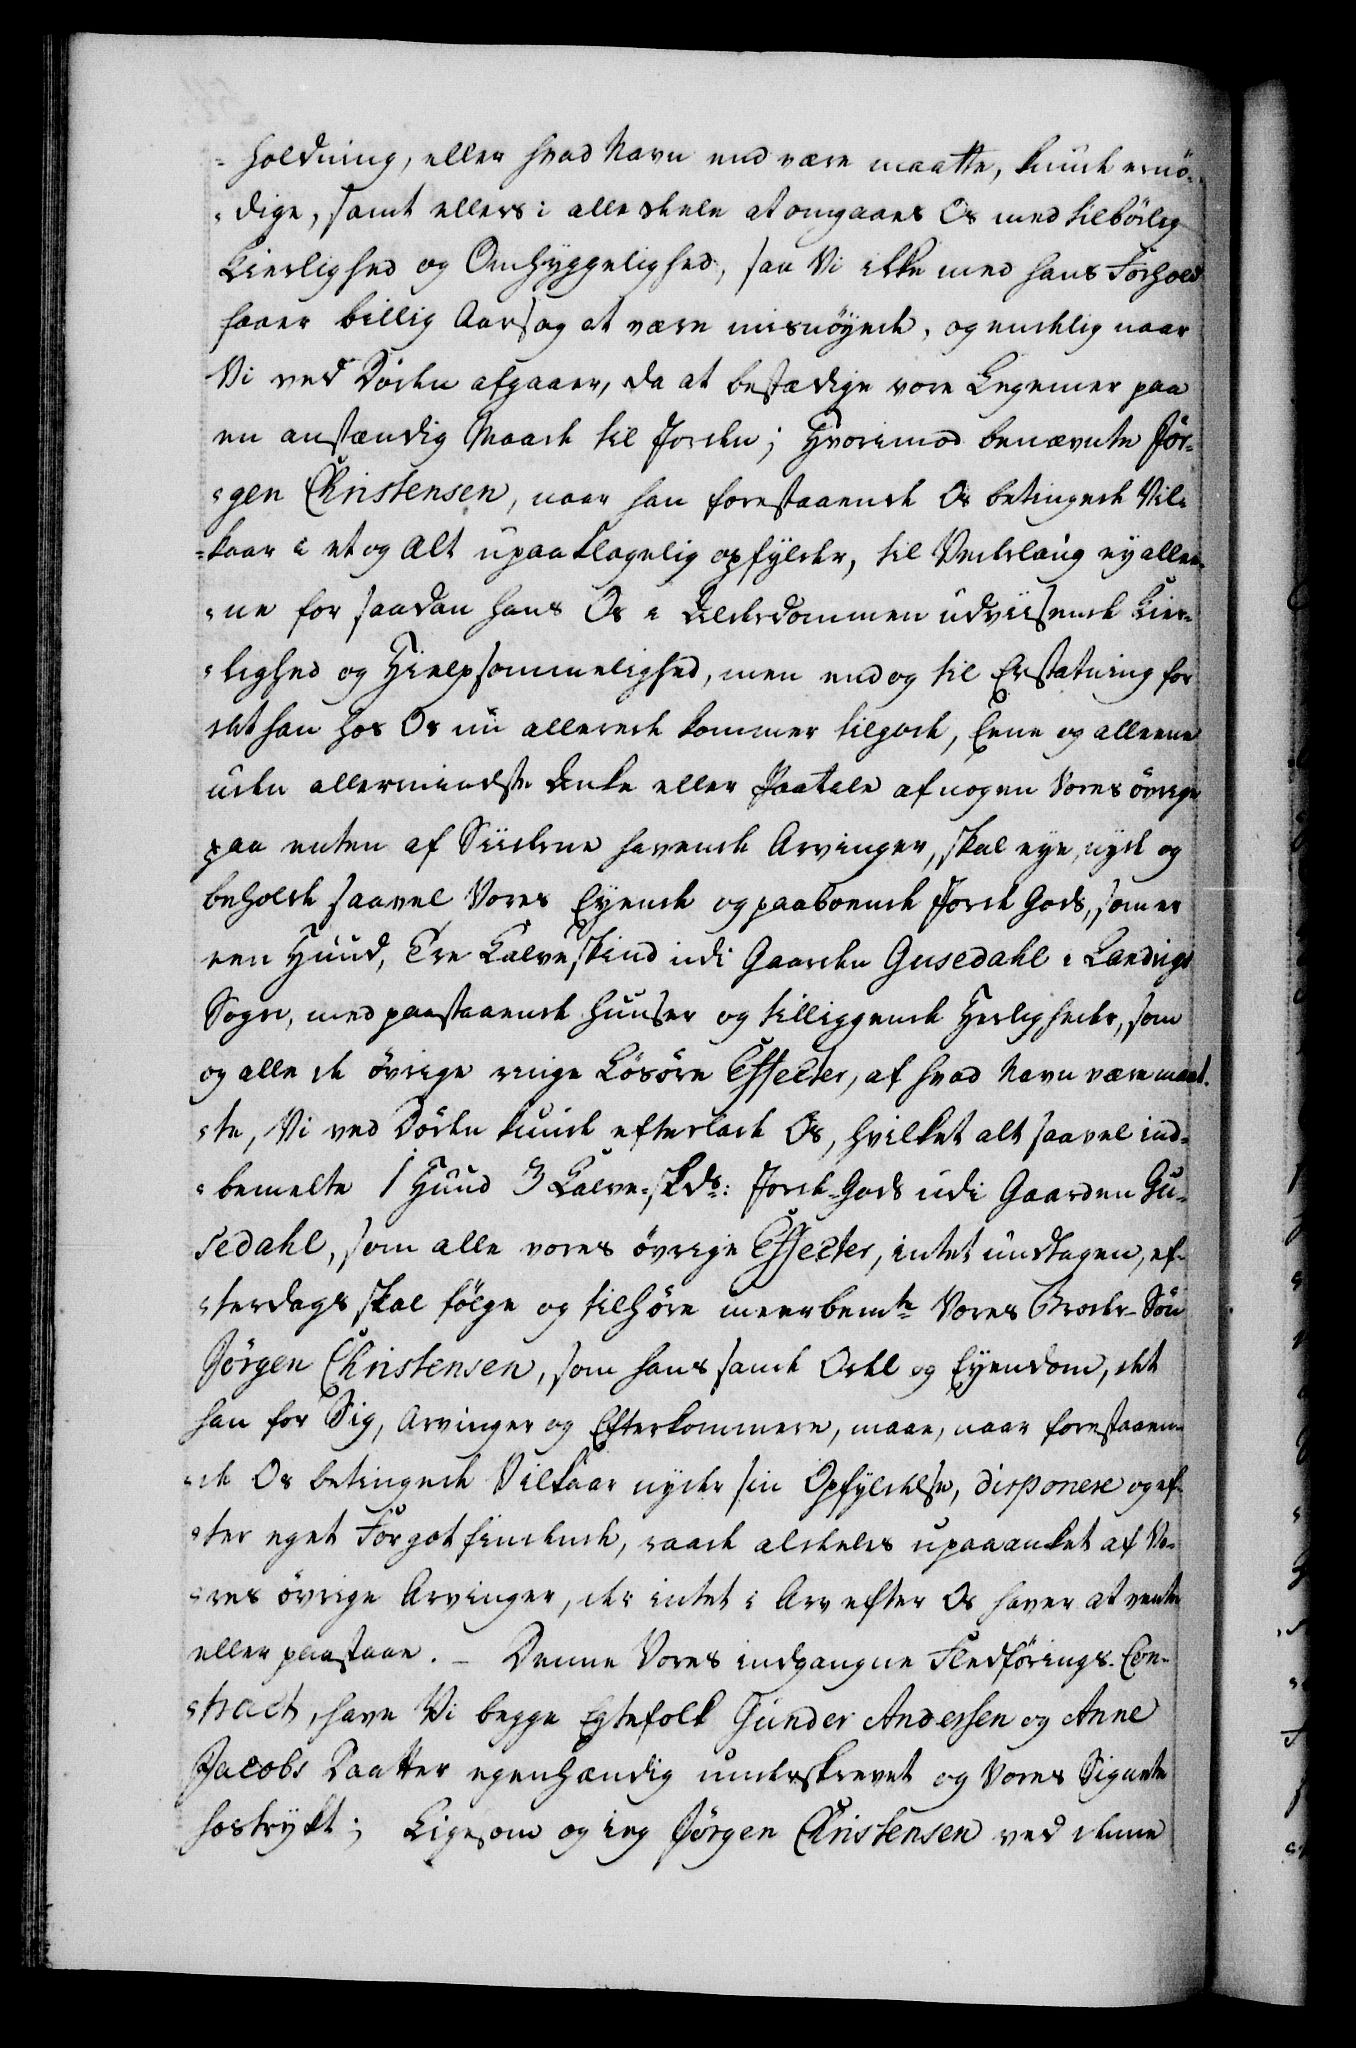 -holdning, eller hvad Navn end være maatte, kunde ernö-
-dige, samt ellers i alle deele at omgaaes Os med tilbörlig
Kierlighed og Omhyggelighed, saa Vi ikke med hans Forhold
faaer billig Aarsag at være misnöyede, og endelig naar
Vi ved Döden afgaaer, da at bestædige vore Legemer paa
en anstændig Maade til Jorden; Hvorimod benævnte Jör-
-gen Christensen, naar han forestaaende Os betingede Vil-
-kaar i et og alt upaaklagelig opfylder, til Vederlaug ey allee-
-ne for saadan hans Os i Alderdommen udviisende Kier-
-lighed og Hielpsommelighed, men endog til Erstatning for
det han hos Os nu allerede kommer tilgode, Eene og alleene
uden allermindste Anke eller Paatale af nogen Vores övrige
paa enten af Siiderne havende Arvinger, skal eye, nyde og
beholde saavel Vores Eyende og paaboende Jorde Gods, som er
een Huud, Tre Kalveskind udi Gaarden Gusedahl i Landvigs
Sogn, med paastaaende Huuser og tilliggende Herligheder, som
og alle de övrige ringe Lösöre Effecter, af hvad Navn være maat-
-te, Vi ved Döden kunde efterlade Os, hvilket alt saavel ind-
-bemelte 1 Huud 3 Kalve-skds: Jorde-Gods udi Gaarden Gu-
sedahl, som alle vores övrige Effecter, intet undtagen, ef-
-terdags skal fölge og tilhöre meerbemte Vores Broder-Sön
Jörgen Christensen, som hans sande Odel og Eyendom, det
han for Sig, Arvinger og Efterkommere, maae, naar forestaaen-
-de Os betingede Vilkaar nyder sin Opfyldelse, disponere og ef-
-ter eget Forgotfindende, raade aldeles upaaanket af Vo-
-res övrige Arvinger, der intet i Arv efter Os haver at vente
eller paastaae. - Denne Vores indgangne Fledförings-Con-
-tract, have Vi begge Egtefolk Gunder Andersen og Anne
Jacobs Daatter egenhændig underskrevet og Vores Signete
hostrykt; Ligesom og ieg Jörgen Christensen ved denne